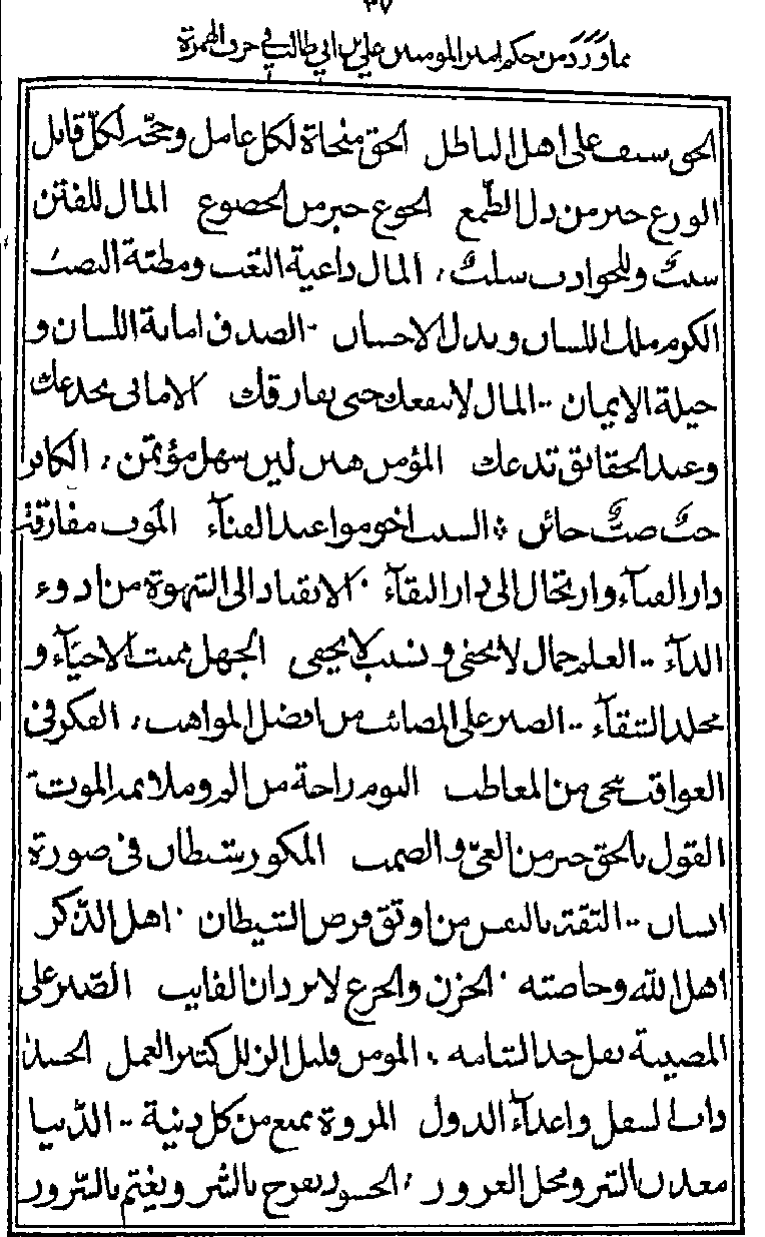 ٣٧
مما ورد من حكم امير المومنين علي بن ابي طالب في حرف الهمزة
الحق سيف على اهل الباطل الحق منجاة لكل عامل وحجة لكل قايل
الورع خير من ذل الطمع الجوع خير من الخضوع المال للفتن
سبب وللحوادث سلب المال داعية التعب ومطية النصب
الكرم ملك اللسان وبذل الاحسان الصدق امانة اللسان و
حيلة الايمان المال لا ينفعك حتى يفارقك الاماني تخدعك
وعند الحقائق تدعك المؤمن هين لين سهل مؤتمن الكافر
خب ضب خائن الشيب اخر مواعيد الفناء الموت مفارقة
دار الفناء وارتحال الى دار البقاء الانقياد الى الشهوة من ادوء
الداء العلم جمال لا يخفى ونسب لا يجفى الجهل مميت الاحياء و
مخلد الشقاء الصبر على المصائب من افضل المواهب الفكر في
العواقب ينجي من المعاطب النوم راحة من الم وملايمه الموت
القول بالحق خير من العي والصمت المكور شيطان في صورة
انسان الثقة بالنفس من اوثق فرص الشيطان اهل الذكر
اهل الله وخاصته الحزن والجزع لا يردان الفايت الصبر على
المصيبة يفل حد الشامت المومن قليل الزلل كثير العمل الحسد
داب السفل واعداء الدول المروة تمنع من كل دنية الدنيا
معدن الشر ومحل الغرور الحسود يفرح بالشر ويغتم بالسرور